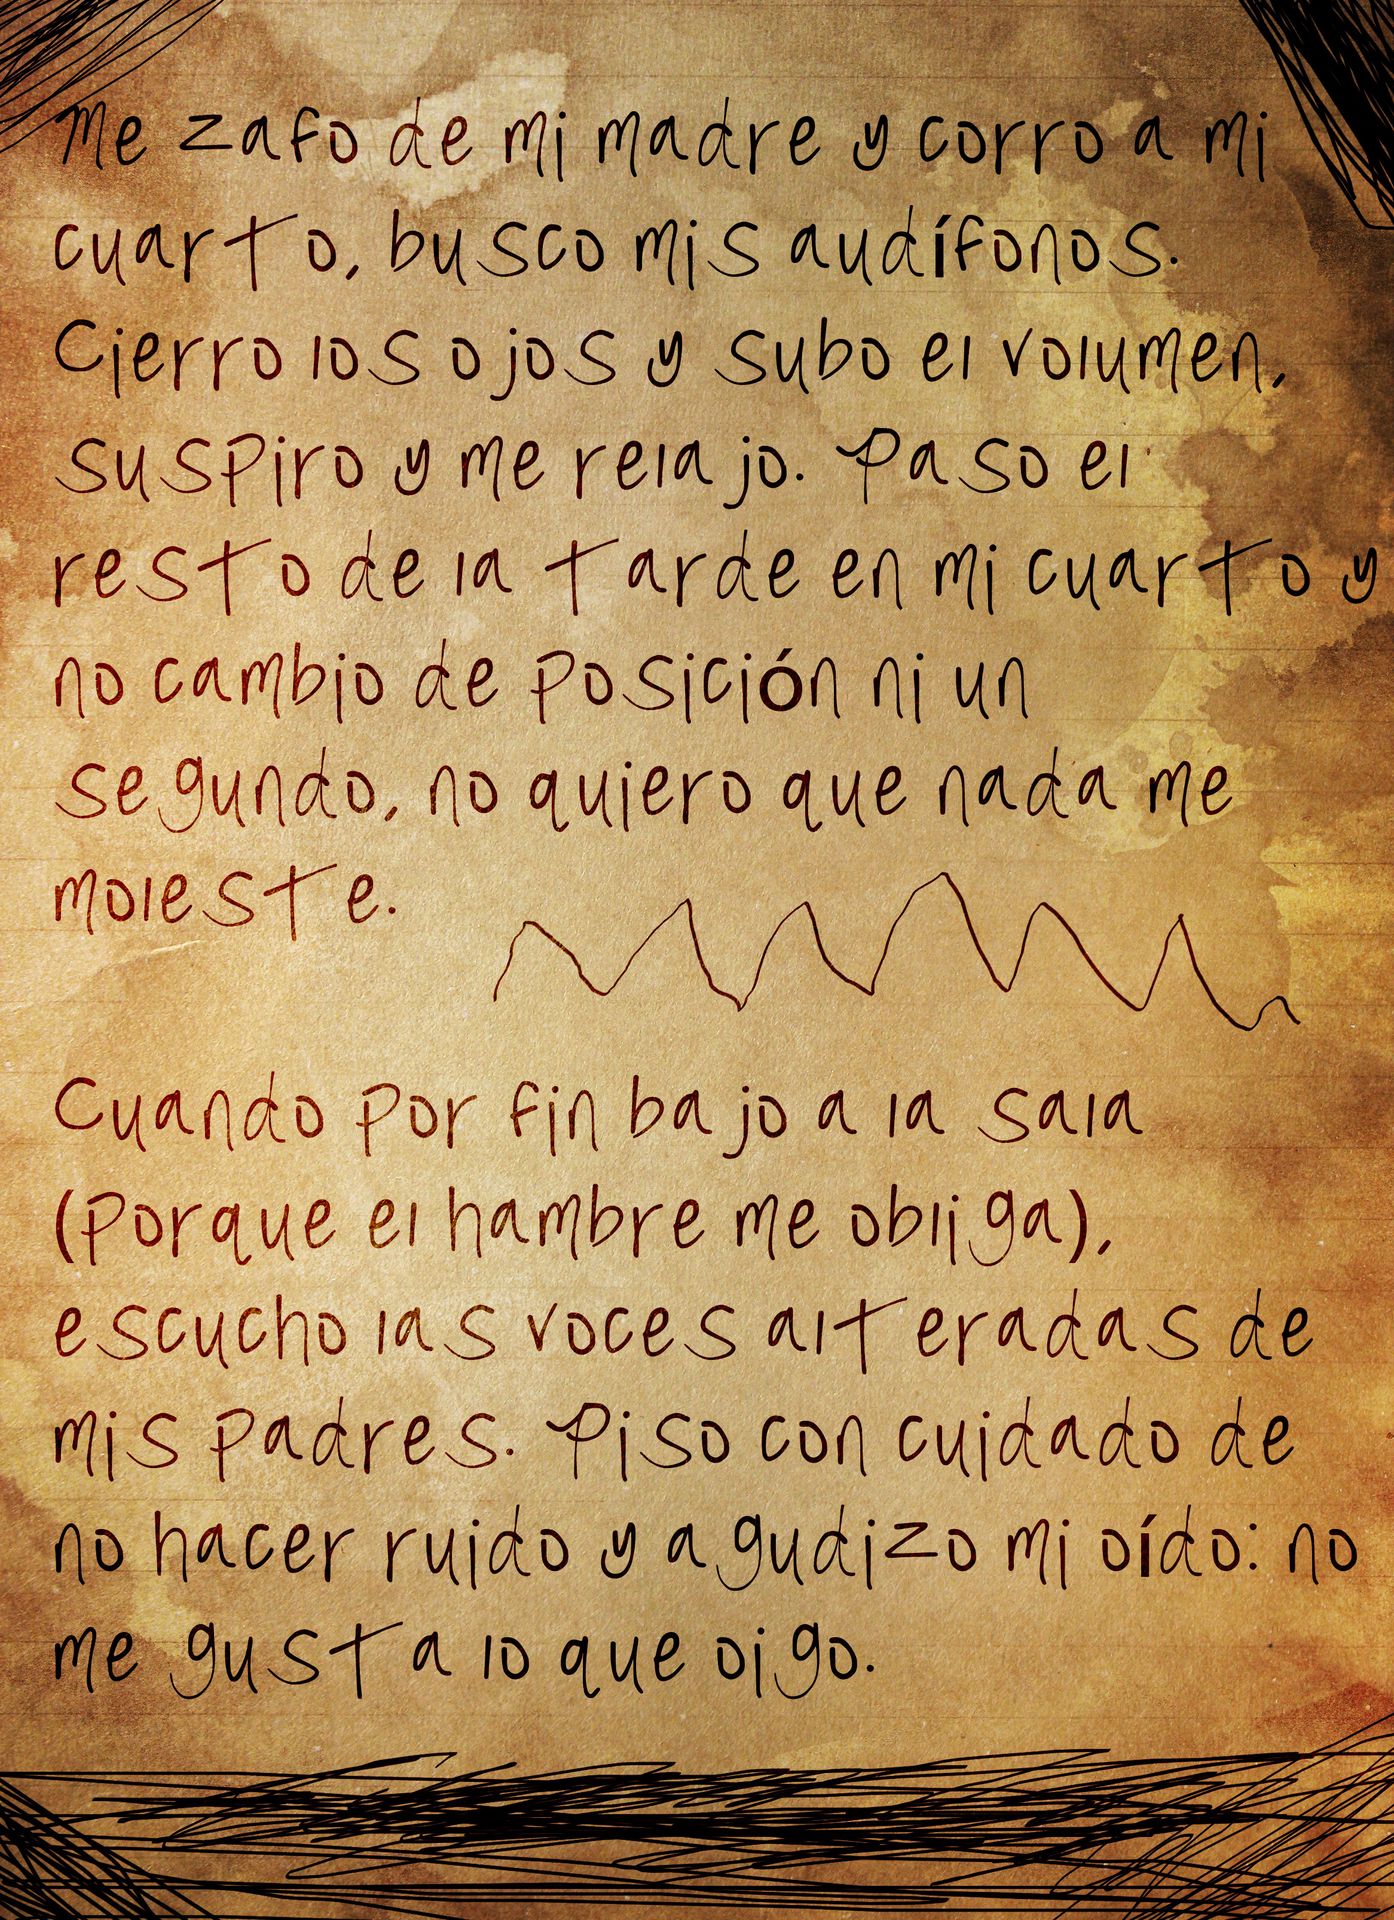 Me zafo de mi madre y corro a mi
cuarto, busco mis audífonos.
Cierro los ojos y subo el volumen,
suspiro y me relajo. Paso el
resto de la tarde en mi cuarto y
no cambio de posición ni un
segundo, no quiero que nada me
moleste.
Cuando por fin bajo a la sala
(porque el hambre me obliga),
escucho las voces alteradas de
mis padres. Piso con cuidado de
no hacer ruido y agudizo mi oído: no
me gusta lo que oigo.